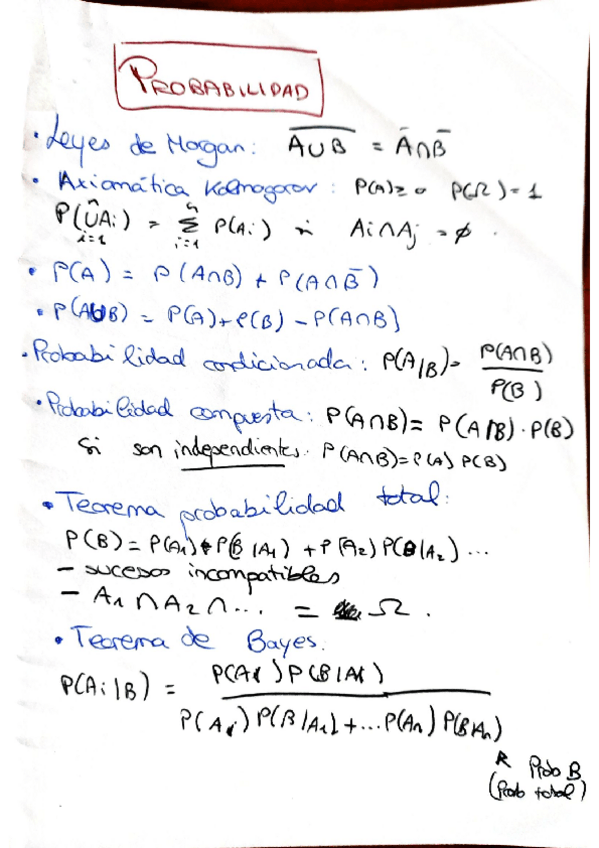 PROBABILIDAD
· Leyes de Morgan: \overline{A∪B} = Ā∩B̄
· Axiomática Kolmogorov: P(A)≥0 P(Ω)=1
P(⋃_{i=1}^{n} Ai) = ∑_{i=1}^{n} P(Ai) si Ai∩Aj = ∅.
· P(A) = P(A∩B) + P(A∩B̄)
· P(A∪B) = P(A)+P(B) - P(A∩B)
· Probabilidad condicionada: P(A/B) = P(A∩B) / P(B)
· Probabilidad compuesta: P(A∩B) = P(A/B)·P(B)
Si son independientes. P(A∩B)=P(A) P(B)
· Teorema probabilidad total:
P(B) = P(A₁)·P(B|A₁) + P(A₂) P(B|A₂) ...
- sucesos incompatibles
- A₁∩A₂∩... = Ω.
· Teorema de Bayes:
P(Ai|B) = P(Ai) P(B|Ai) / P(A₁) P(B|A₁)+...P(An) P(B|An)
Prob B
(Prob total)